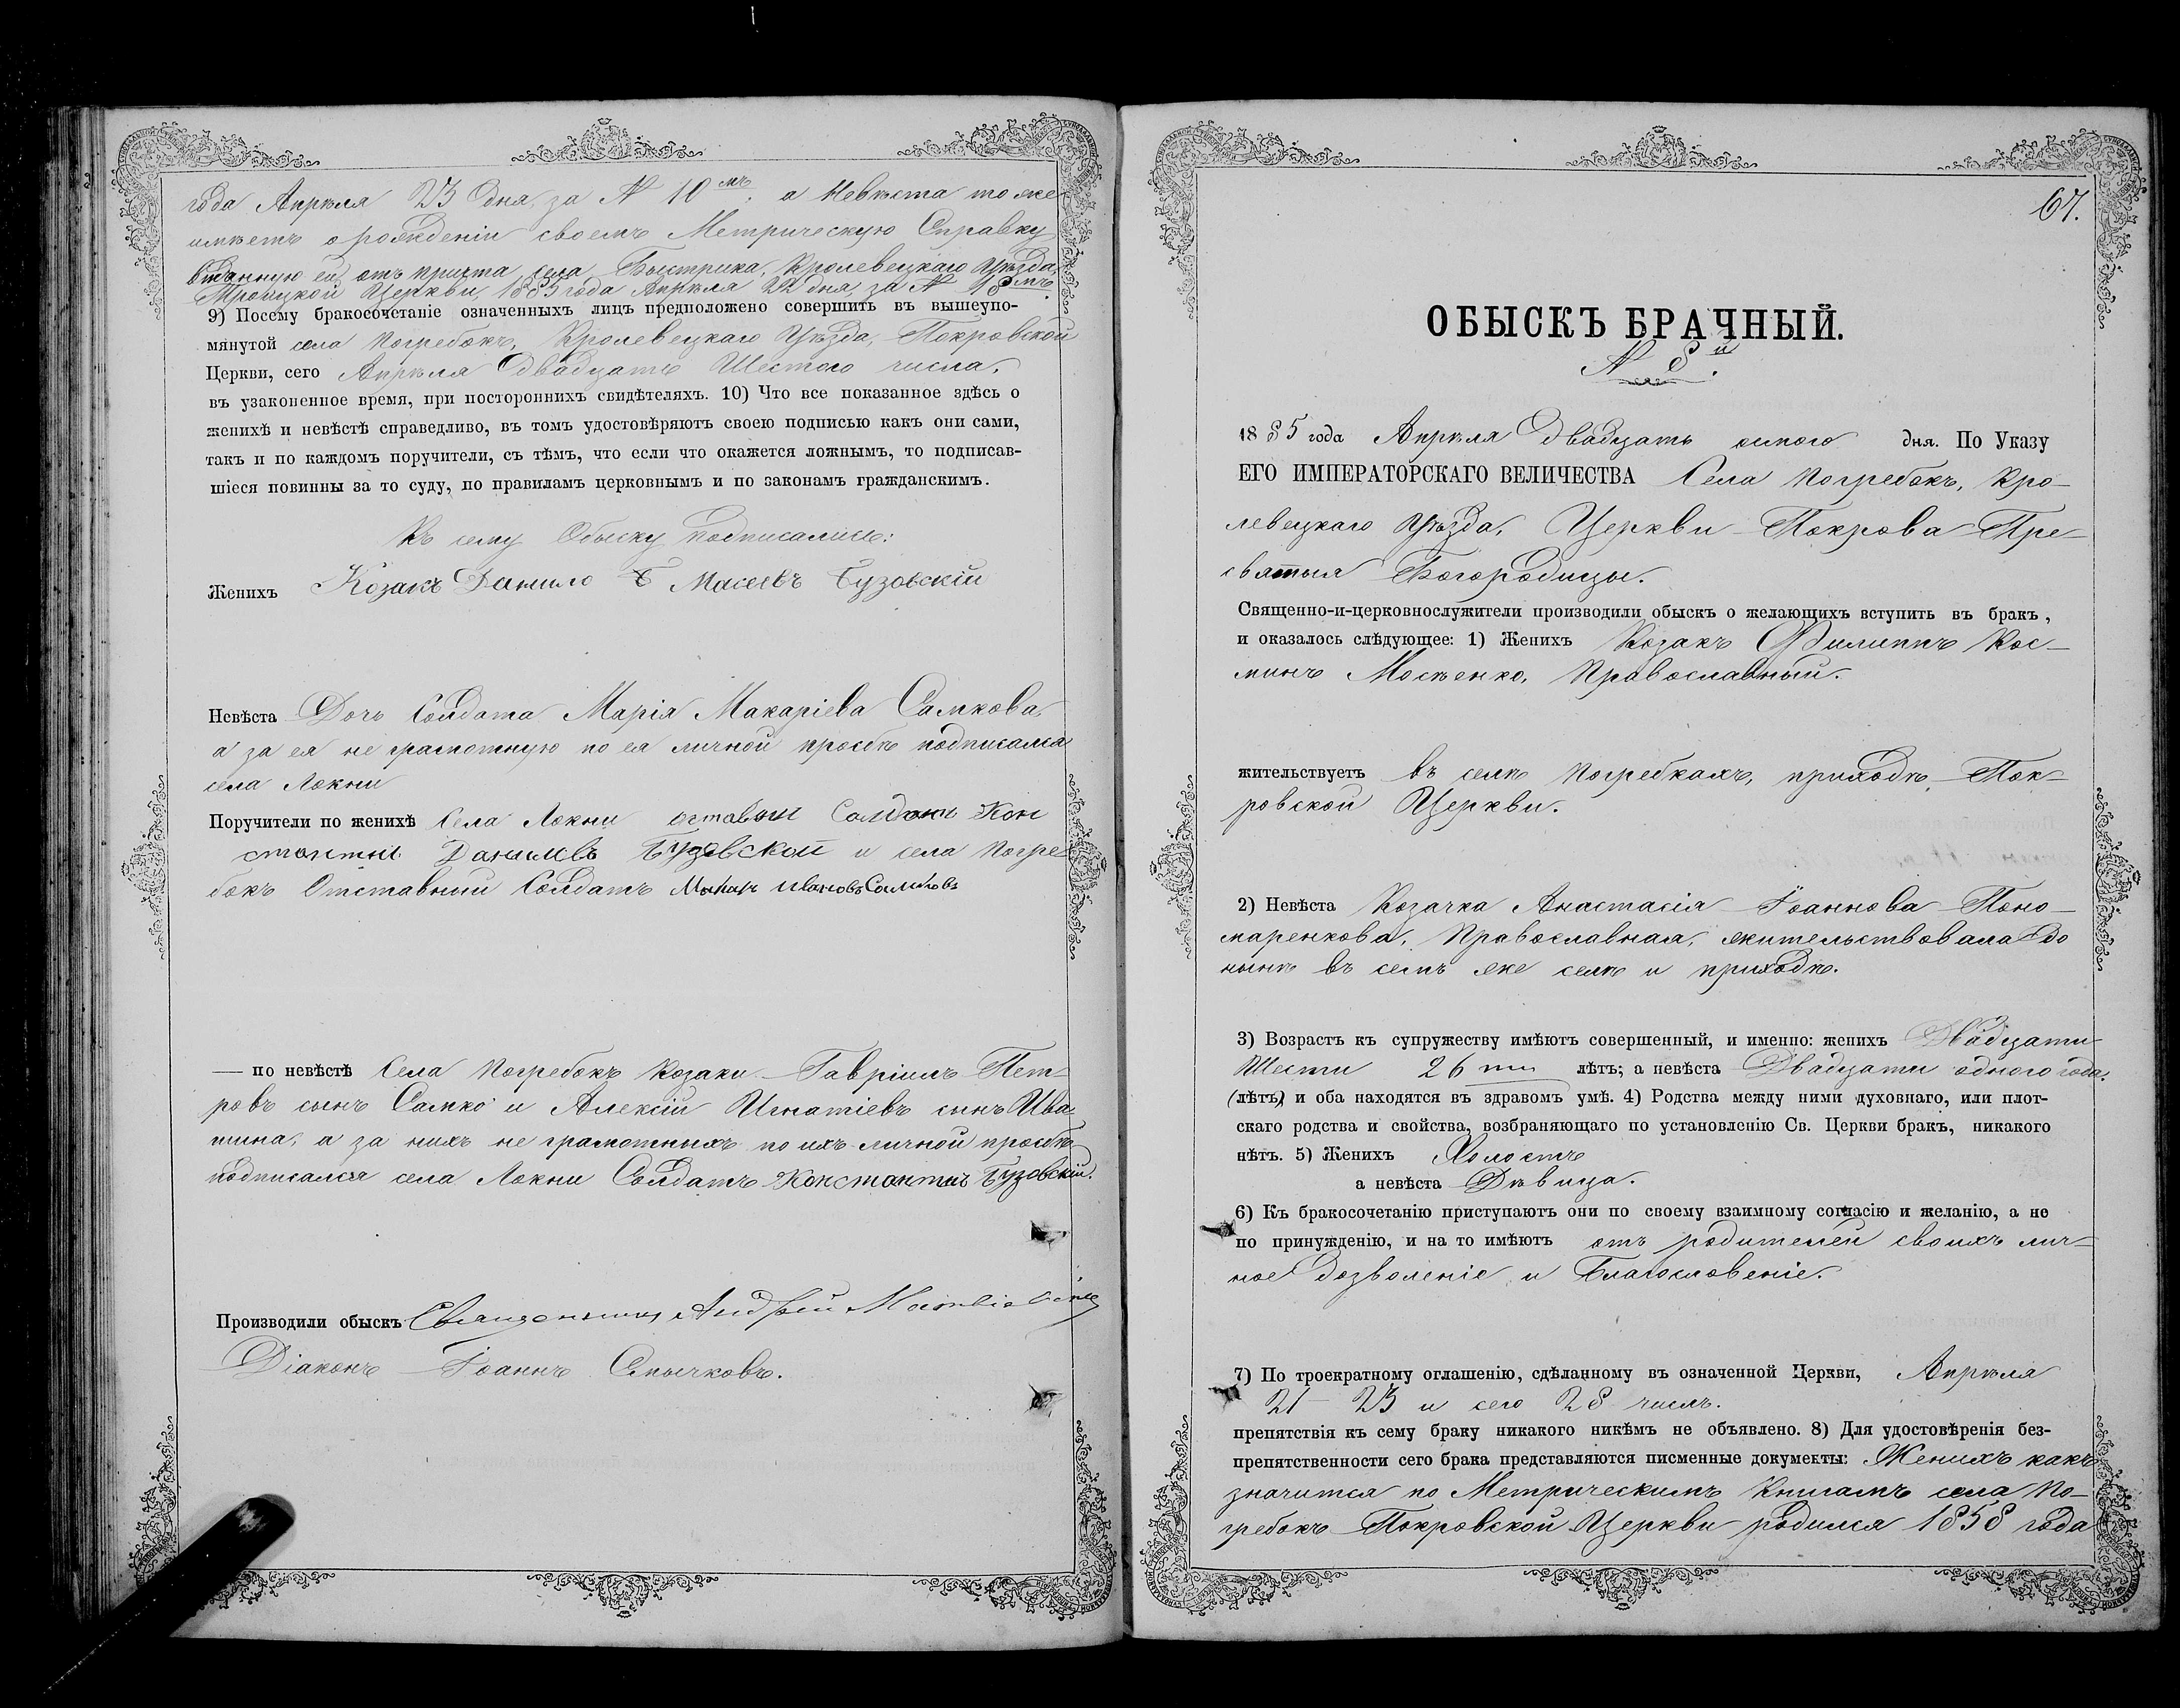 года Апрѣля 23 дня, за № 10мъ, а Невѣста тоже
имѣетъ о рожденіи своемъ Метрическую Справку
выданную ей отъ причта села Быстрика, Кролевецкаго Уѣзда,
Троицкой Церкви, 1885 года Апрѣля 22 дня, за № 18мъ.
9) Посему бракосочетаніе означенныхъ лицъ предположено совершить въ вышеупо-
мянутой села Погребокъ, Кролевецкаго Уѣзда, Покровской
Церкви, сего Апрѣля двадцать Шестого числа,
въ узаконенное время, при постороннихъ свидѣтеляхъ. 10) Что все показанное здѣсь о
женихѣ и невѣстѣ справедливо, въ томъ удостовѣряютъ своею подписью какъ они сами,
такъ и по каждомъ поручители, съ тѣмъ, что если что окажется ложнымъ, то подписав-
шіеся повинны за то суду, по правиламъ церковнымъ и по законамъ гражданскимъ.
Къ сему Обыску подписались:
Женихъ Козакъ Данило Б Масеевъ Бузовскій
Невѣста Дочь Солдата Марія Макаріева Самкова,
а за ея не грамотную по ея личной просьбѣ подписался
села Локни
Поручители по женихѣ Села Локни Солдатъ Кон
стантин Данилевъ Бузовской и села Погре
бокъ Отставный Солдатъ Макаръ Ивановъ Самковъ
— по невѣстѣ Села Погребокъ Козаки Гавріилъ Пет-
ровъ сынъ Самко и Алексій Игнатіевъ сынъ Ива
шина, а за нихъ не грамотныхъ по ихъ личной просьбѣ
подписался села Локни Солдатъ Константинъ Бузовскій.
Производили обыскъ Священникъ Андрей
Діаконъ Іоаннъ Смычковъ.
67.
ОБЫСКЪ БРАЧНЫЙ.
№ 8й.
1885 года Апрѣля Двадцать осмого дня. По Указу
ЕГО ИМПЕРАТОРСКАГО ВЕЛИЧЕСТВА Села Погребокъ, Кро-
левецкаго Уѣзда, Церкви Покрова Пре-
святыя Богородицы.
Священно-и-церковнослужители производили обыскъ о желающихъ вступить въ бракъ,
и оказалось слѣдующее: 1) Женихъ Козакъ Филиппъ Кос-
минъ Мосѣенко, Православный.
жительствуетъ въ селѣ Погребкахъ, приходѣ Пок-
ровской Церкви.
2) Невѣста Козачка Анастасія Іоаннова Поно-
маренкова, Православная, жительствовала до
нынѣ въ семъ же селѣ и приходѣ.
3) Возрастъ къ супружеству имѣютъ совершенный, и именно: женихъ Двадцати
Шести 26ти лѣтъ; а невѣста Двадцати одного года.
(лѣтъ) и оба находятся въ здравомъ умѣ. 4) Родства между ними духовнаго, или плот-
скаго родства и свойства, возбраняющаго по установленію Св. Церкви бракъ, никакого
нѣтъ. 5) Женихъ Холостъ
а невѣста Дѣвица.
6) Къ бракосочетанію приступаютъ они по своему взаимному согласію и желанію, а не
по принужденію, и на то имѣютъ отъ родителей своихъ лич-
ное дозволеніе и Благословеніе.
7) По троекратному оглашенію, сдѣланному въ означенной Церкви, Апрѣля
21 – 23 и сего 28 числъ.
препятствія къ сему браку никакого никѣмъ не объявлено. 8) Для удостовѣренія без-
препятственности сего брака представляются писменные документы: Женихъ какъ
значится по Метрическимъ Книгамъ села По-
гребокъ Покровской Церкви родился 1858 года